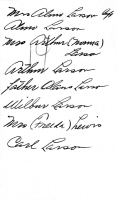 Mrs Alma Larson
Alma Larson
Mrs Arthur (Norma)
Larson
Arthur Larson
Father Alans Larson
Wilbur Larson
Mrs (Freda) Lewis
Carl Larson